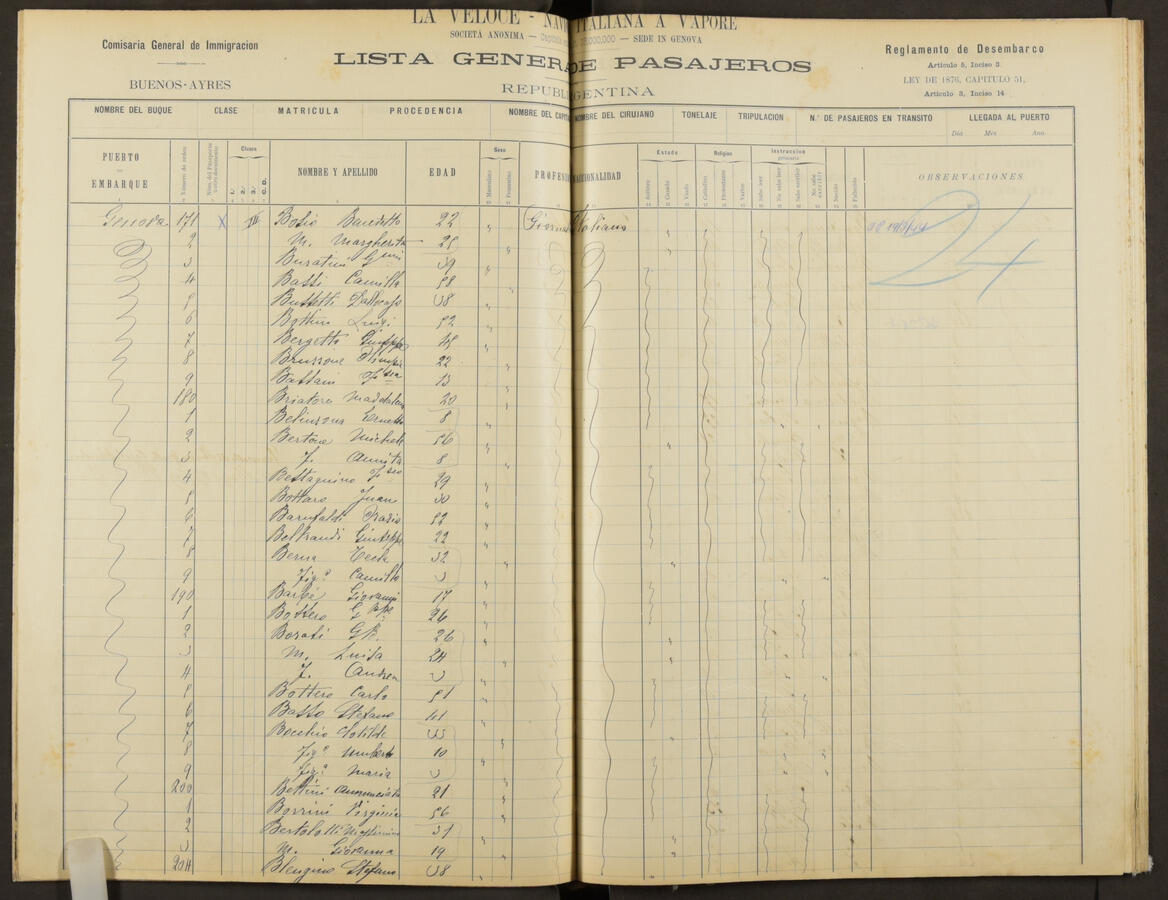 LA VELOCE - NAV ITALIANA A VAPORE
SOCIETÀ ANONIMA — — SEDE IN GENOVA
Comisaria General de Immigracion
BUENOS-AYRES
LISTA GENERA DE PASAJEROS
REPUBLI GENTINA
Reglamento de Desembarco
Articulo 5, Inciso 3
LEY DE 1876, CAPITULO 51,
Articulo 3, Inciso 14
NOMBRE DEL BUQUE CLASE MATRICULA PROCEDENCIA NOMBRE DEL CAPIT NOMBRE DEL CIRUJANO TONELAJE TRIPULACION N.º DE PASAJEROS EN TRANSITO LLEGADA AL PUERTO
Dia Mes Ano
PUERTO EMBARQUE Número de orden Clases 1.ª 2.ª 3.ª NOMBRE Y APELLIDO EDAD Sexo Masculino Femenino PROFESI NACIONALIDAD Estado Soltero Casado Viudo Religion Catolico Protestante Varios Instruccion primaria Sabe leer No sabe leer Sabe escribir No sabe escribir Nacido Fallecido OBSERVACIONES
Genova 171 X III Bosio Benedetto 22 " Giorna Italiano
2 M. Margherita 25 "
3 Buratini 39 "
4 Bassi Camilla 58 "
5 Bussetti 38 "
6 Bottini Luigi 52 "
7 Bergetto Giuseppe 45 "
8 Bruzzone 22 "
9 Bassani 13 "
180 Briatore Maddalena 20 "
1 Belinzona Ernesto 8 "
2 Bertone Michele 56 "
3 F. Annita 8 "
4 Bestagnino 29 "
5 Bottaro Juan 30 "
6 Barufaldi Orazio 52 "
7 Beltrandi Giuseppe 22 "
8 Berna Tecla 32 "
9 Fig.º Camillo 3 "
190 Barbé Giovanni 17 "
1 Bottero G Bpe 26 "
2 Borati GB. 26 "
3 M. Luisa 24 "
4 F. Andrea 3 "
5 Bottero Carlo 51 "
6 Basso Stefano 41 "
7 Bocchio Clotilde 33 "
8 Fig.º Umberto 10 "
9 Fig.ª Maria 3 "
200 Bettini Annunciata 21 "
1 Borrini Virginia 56 "
2 Bertolotti Massimino 31 "
3 M. Giovanna 19 "
204 Blengino Stefano 38 "
24